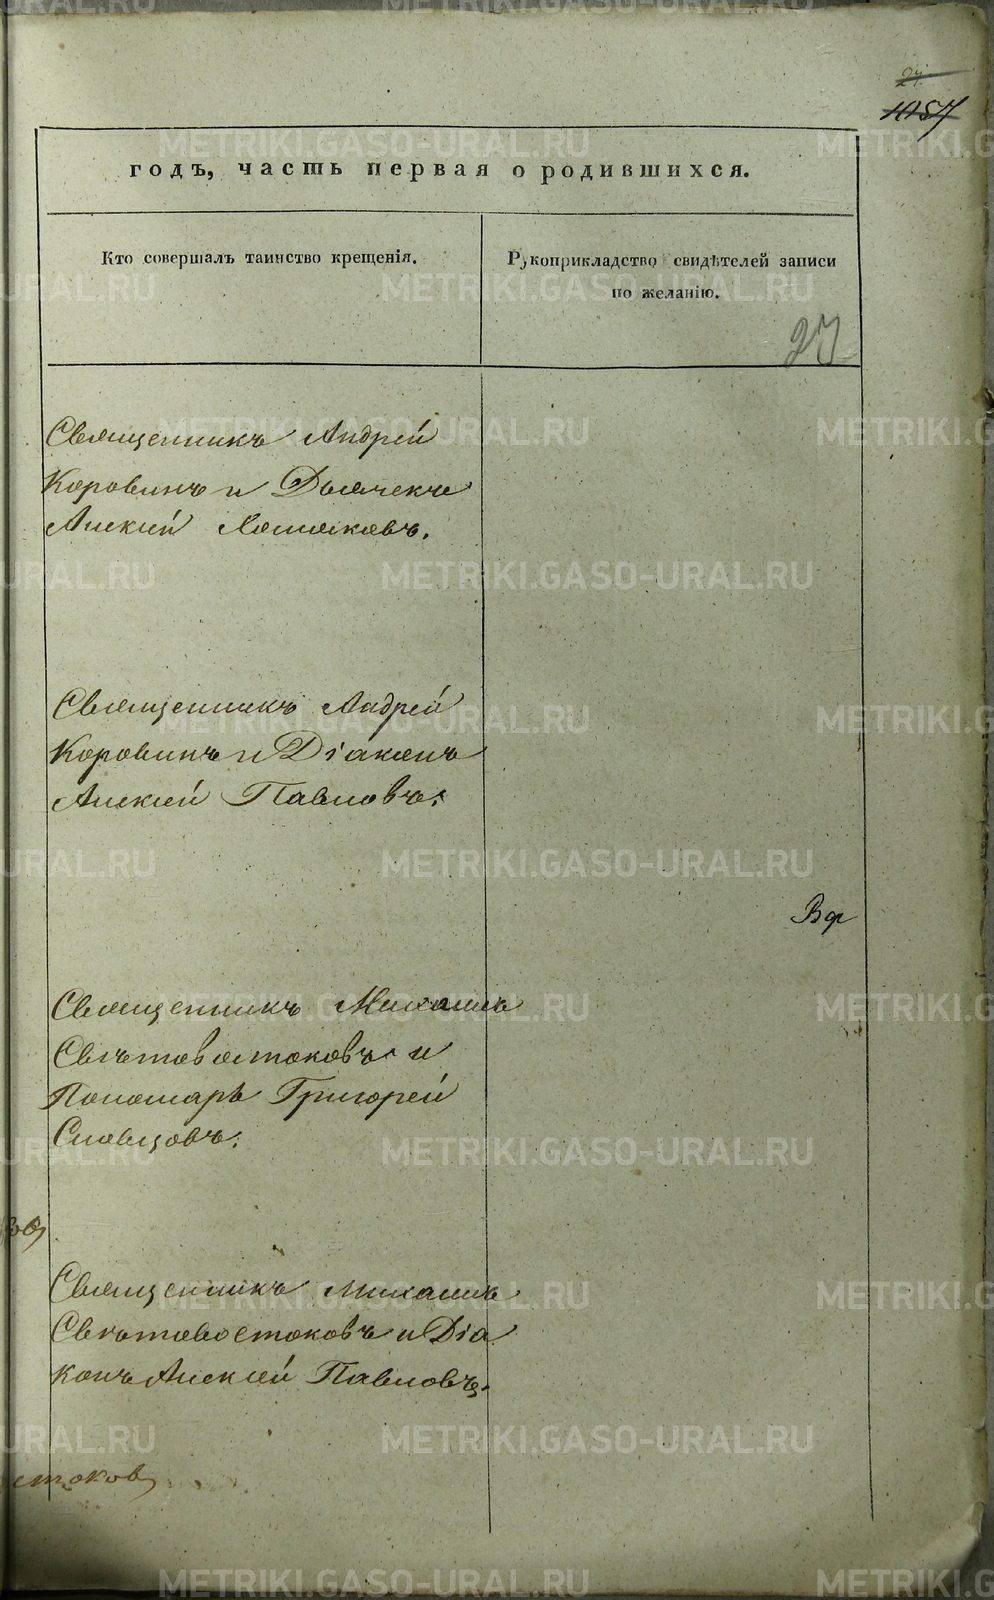 27
1057
годъ, часть первая о родившихся.
Кто совершалъ таинство крещенія.
Рукоприкладство свидѣтелей записи
по желанію.
27
Священникъ Андрей
Коровинъ и Дьячекъ
Алексѣй Хомяковъ.
Священникъ Андрей
Коровинъ и Діаконъ
Алексѣй Павловъ.
Вф
Священникъ Михаилъ
Свѣтовостоковъ и
Пономарь Григорей
Словцовъ.
Священникъ Михаилъ
Свѣтовостоковъ и Діа
конъ Алексѣй Павловъ.
стоковъ
METRIKI.GASO-URAL.RU